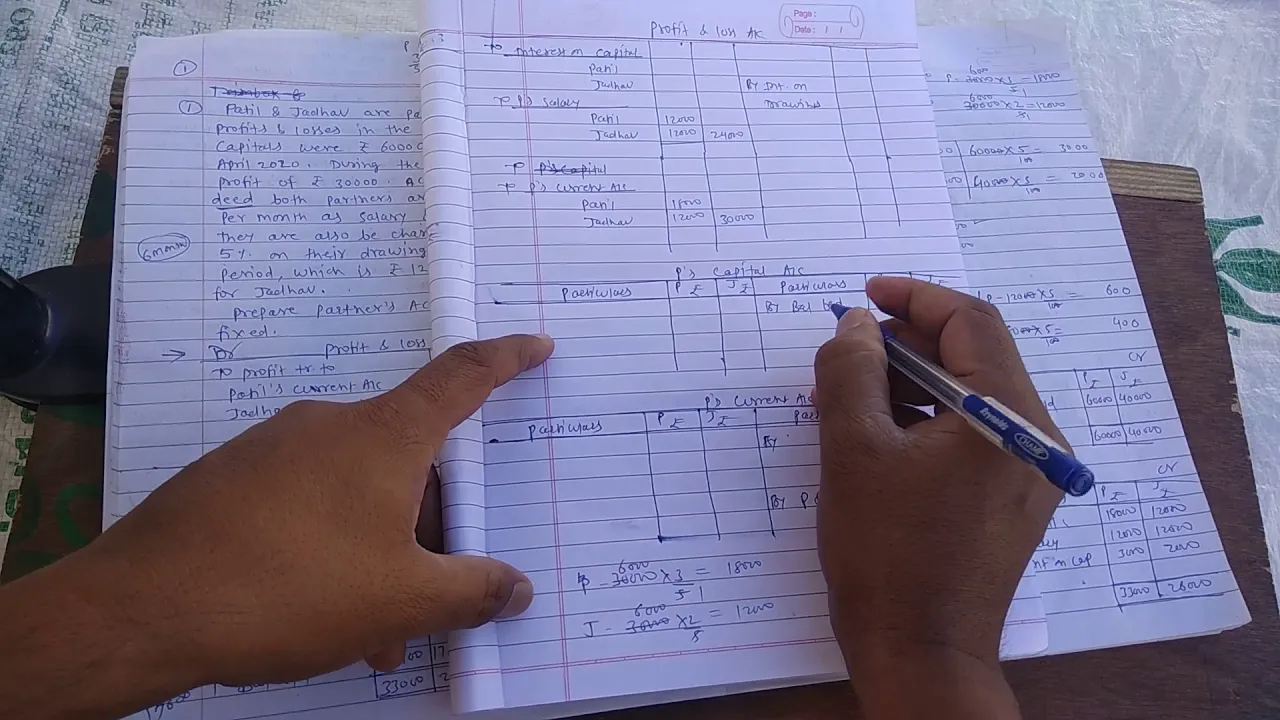 Profit & loss A/C
Page :
Date : / /
To Interest on Capital
Patil
Jadhav
By Int. on
Drawings
To P's Salary
Patil 12000
Jadhav 12000 24000
To P's Capital
To P's Current A/C
Patil 18000
Jadhav 12000 30000
P's Capital A/C
Particulars P ₹ J ₹ Particulars
By Bal
P's Current A/C
Particulars P ₹ J ₹
By
By P
6000
P - 30000 × 3/5 = 18000
1
6000
J - 30000 × 2/5 = 12000
①
①
Patil & Jadhav are
profits & losses in the
Capitals were ₹ 6000
April 2020. During the
profit of ₹ 30000.
deed both partners
Per month as salary
they are also be
5% on their drawing
Period, which is ₹ 12
for Jadhav.
6 months
prepare partner's
fixed.
→ Dr profit & loss
To profit tr to
Patil's Current A/C
33000
6000
P - 30000 × 3/5 = 18000
1
6000
30000 × 2/5 = 12000
60000 × 5/100 = 3000
40000 × 5/100 = 2000
P - 12000 × 5/100 = 600
× 5/100 = 400
Cr
P ₹ J ₹
60000 40000
60000 40000
Cr
P ₹ J ₹
18000 12000
12000 12000
nt on cap 3000 2000
33000 26000
Reynolds